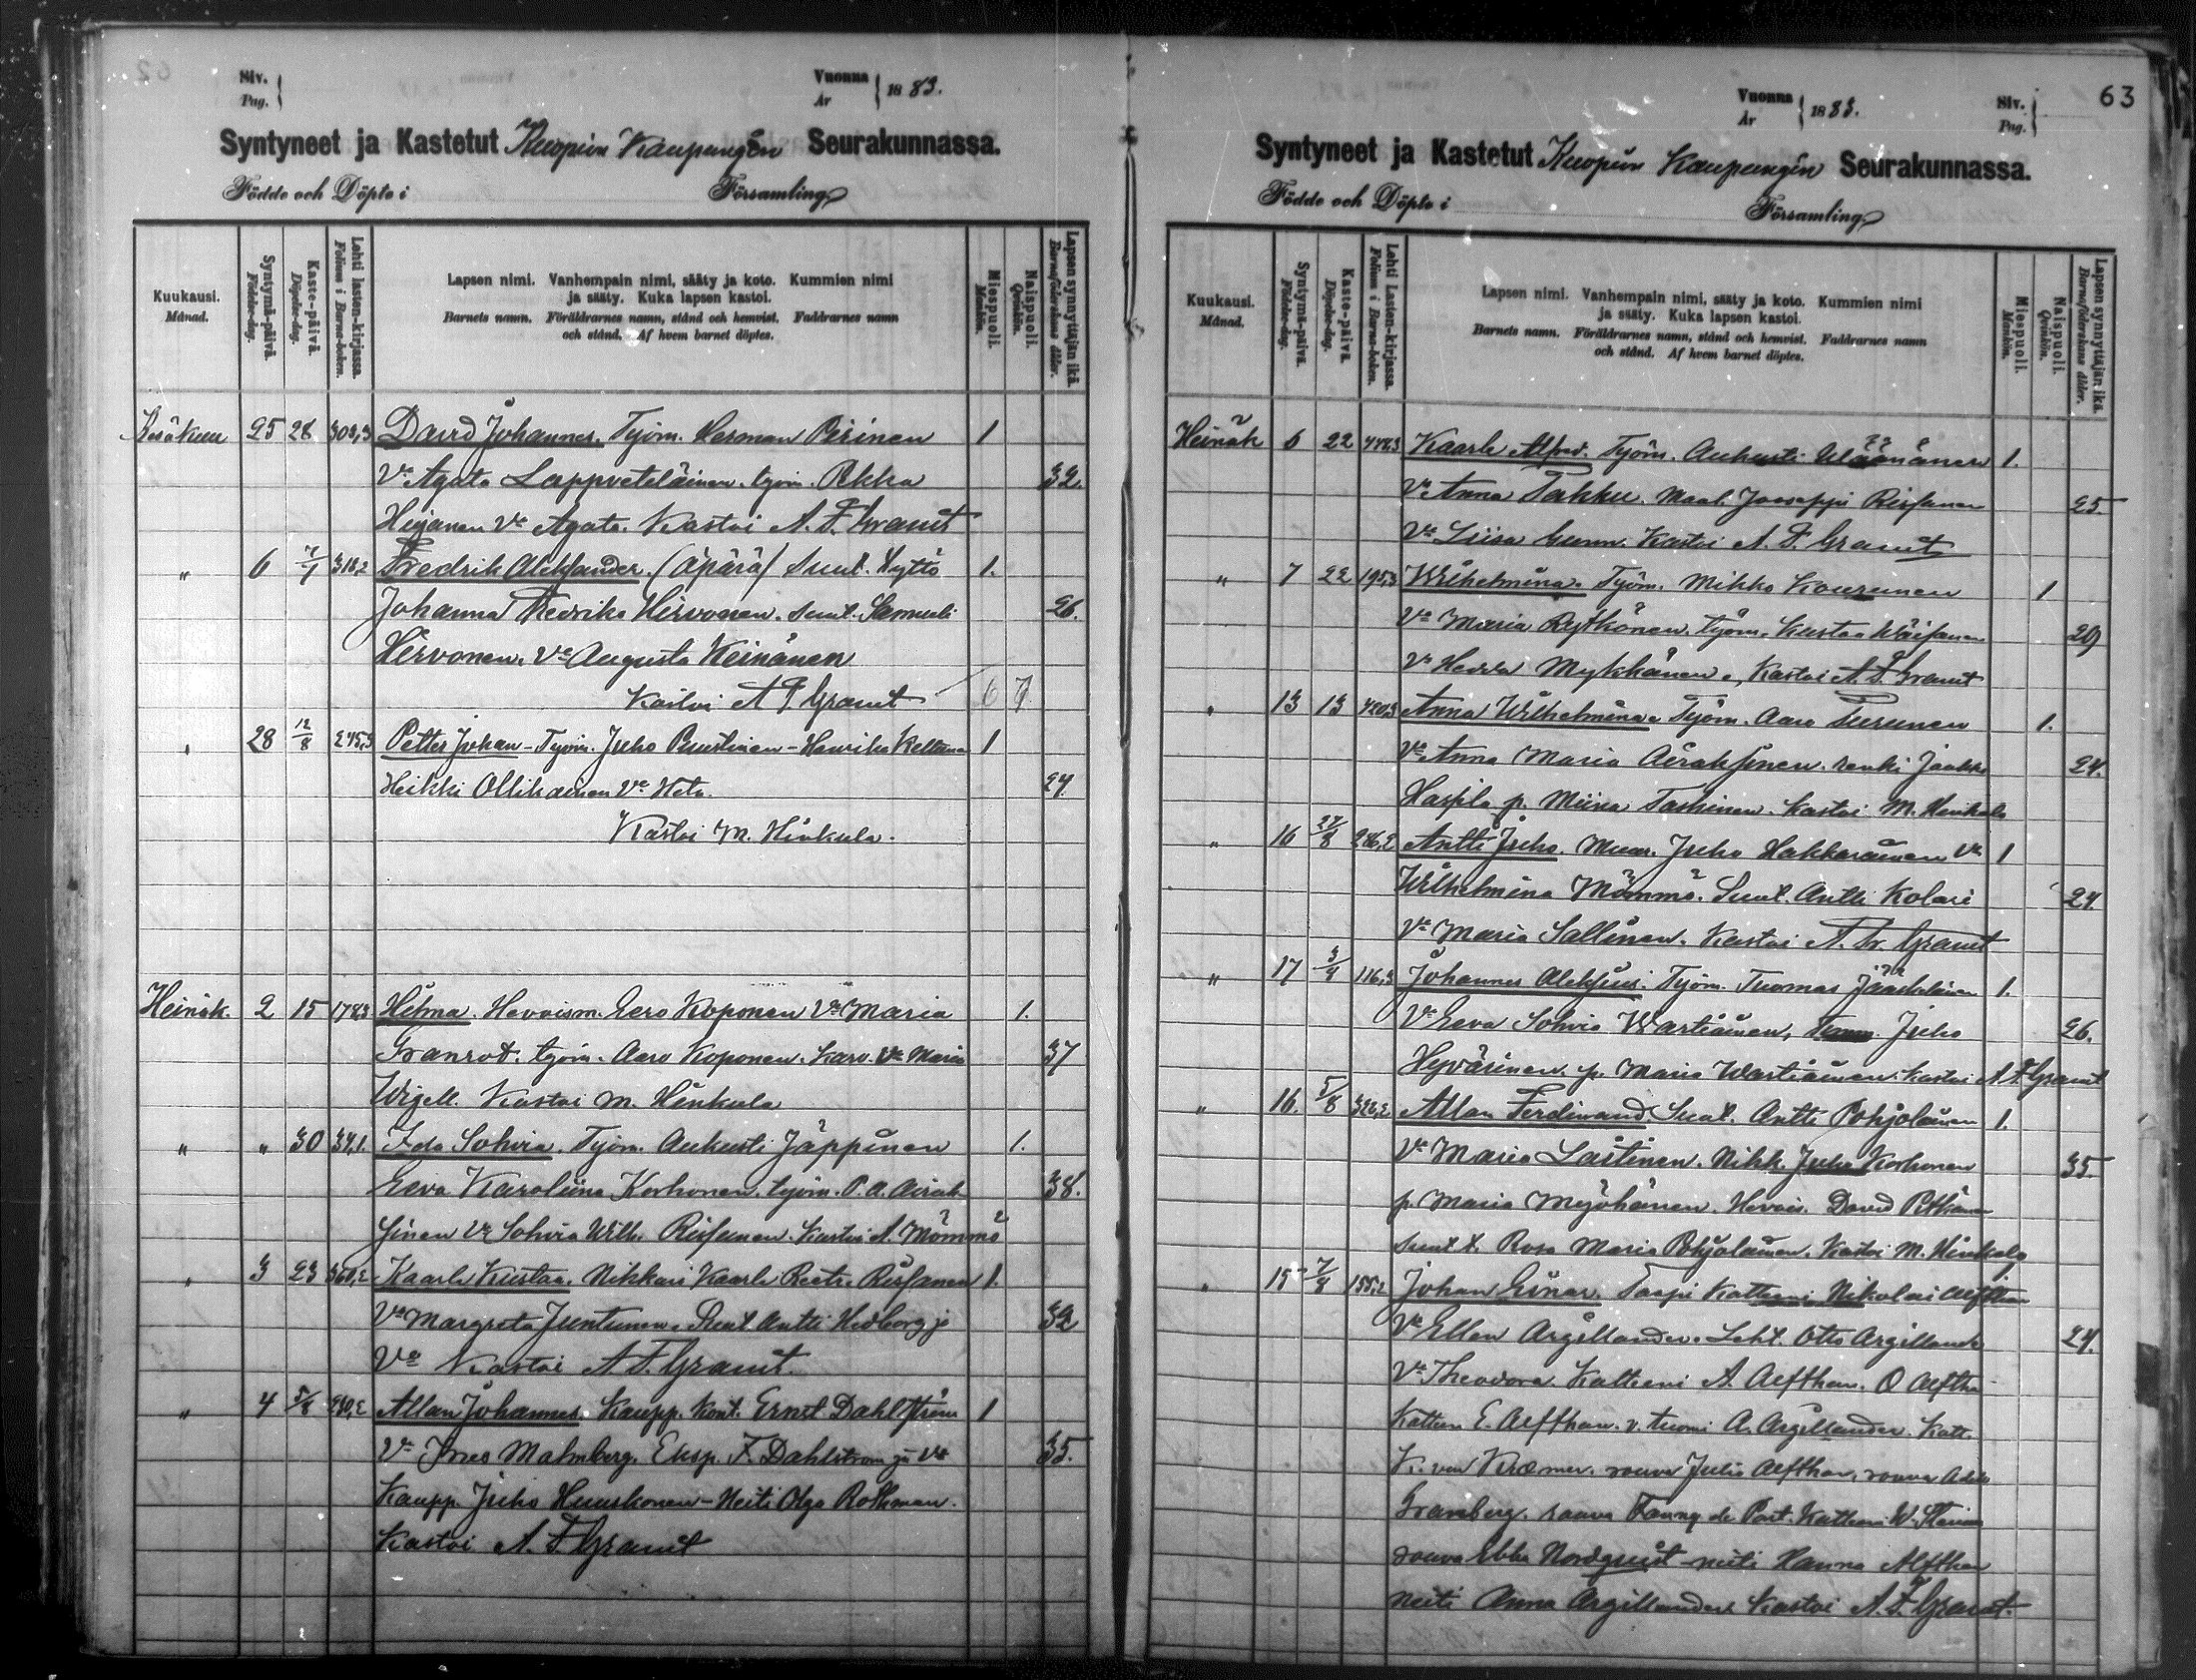 Siv.
Pag.
Vuonna
År
1883.
Syntyneet ja Kastetut Kuopion Kaupungin Seurakunnassa.
Födde och Döpte i Församling
Kuukausi.
Månad.
Syntymä-päivä.
Födelse-dag.
Kaste-päivä.
Döpelse-dag.
Lehti lasten-kirjassa.
Folium i Barna-boken.
Lapsen nimi. Vanhempain nimi, sääty ja koto. Kummien nimi
ja sääty. Kuka lapsen kastoi.
Barnets namn. Föräldrarnes namn, stånd och hemvist. Faddrarnes namn
och stånd. Af hvem barnet döptes.
Miespuoli.
Mankön.
Naispuoli.
Qvinkön.
Lapsen synnyttäjän ikä.
Barnaföderskans ålder.
Kesäkuu 25 28 303,3 David Johannes. Työm. Herman Pirinen 1
Vo Agata Lappveteläinen. työm. Pekka 32.
Vo Agata. Kastoi A. F. Granit
" 6 318,2 Fredrik Aleksander. (Äpärä) Suut. Johanna Fredrika Hirvonen. Suut. Samuli 26.
Hirvonen. Vo Augusta Keinänen
Kastoi A F Granit 6 7
" 28 12/8 275,3 Petter Johan - Työm. Juho Puustinen - Henrika 1
Heikki Ollikainen Vo 24.
Kastoi M. Hinkula.
Heinäk. 2 15 178,3 Hilma. Hevoism. Eero Koponen Vo Maria 1.
Granrot. työm. Aaro Koponen. Karv. Vo Maria 37
Wigell. Kastoi M. Hinkula
" " 30 34,1. Ida Sohvia. Työm. Aukusti Jäppinen 1.
Eeva Karoliina Korhonen. työm. P. A. Airak 38.
sinen Vo Sohvia Wilh. Reissunen. Kastoi A. Mömmö
" 3 23 360,2 Kaarle Kustaa. Nikkari Kaarle Reissanen 1.
Vo Margreta Juntunen. Suut. Antti Hedborg ja 32
Vo Kastoi A F. Granit.
" 4 5/8 230,2 Allan Johannes. Kaupp. Kont. Ernst Dahlström 1
Vo Ines Malmberg. Eksp. F. Dahlstrom ja Vo 35.
Kaupp. Juho Huuskonen - Neiti Olga Rothman.
Kastoi A. F. Granit
63
Vuonna
År
1883.
Siv.
Pag.
Syntyneet ja Kastetut Kuopion Kaupungin Seurakunnassa.
Födde och Döpte i Församling
Kuukausi.
Månad.
Syntymä-päivä.
Födelse-dag.
Kaste-päivä.
Döpelse-dag.
Lehti Lasten-kirjassa.
Folium i Barna-boken.
Lapsen nimi. Vanhempain nimi, sääty ja koto. Kummien nimi
ja sääty. Kuka lapsen kastoi.
Barnets namn. Föräldrarnes namn, stånd och hemvist. Faddrarnes namn
och stånd. Af hvem barnet döptes.
Miespuoli.
Mankön.
Naispuoli.
Qvinkön.
Lapsen synnyttäjän ikä.
Barnaföderskans ålder.
Heinäk 6 22 Kaarle Alfred. Työm. Aukusti Wäänänen 1.
Vo Anna Takku. Maal. Jooseppi Rissanen 25.
Vo Liisa Gunn. Kastoi A. F. Granit
" 7 22 195,3 Wilhelmina. Työm. Mikko Kourunen 1
Vo Maria Rytkönen. Työm. Kustaa Wäisänen 29
Vo Mykkänen. Kastoi A. F. Granit
" 13 13 420,3 Anna Wilhelmina. Työm. Aaro Turunen 1.
Vo Anna Maria Airaksinen. renki Jaakko 24.
p. Miina Taskinen. Kastoi M. Hinkula
" 16 27/8 286,2 Antti Juho. Muur. Juho Hakkarainen Vo 1
Wilhelmina Mömmö. Suut. Antti Kolari 24.
Vo Maria Sallinen. Kastoi A. Fr. Granit
" 17 116,3 Johannes Aleksius. Työm. Tuomas Jääskeläinen 1.
Vo Eeva Sohvia Wartiainen, Juho 26.
Hyvärinen. p. Maria Wartiainen. Kastoi A F Granit
" 16. 5/8 326,2 Allan Ferdinand Suut. Antti Pohjolainen 1.
Vo Maria Laitinen. Nikk. Juho Korhonen 35.
p. Maria Myöhänen. Hevois. David Pitkänen
suut t. Rosa Maria Pohjolainen. Kastoi M. Hinkula
" 15 7/8 155,2 Johan Einar. Nikolai Alfthan
Vo Ellen Argillander. Leht. Otto Argillander 24.
Vo Theodora. Katteini A. Alfthan. O Alfthan
E. Alfthan. v. tuomi A. Argillander. Katt.
K. von Kræmer. rouva Julia Alfthan, rouva
Granberg. rouva Fanny de Pont. Katteini W.
rouva Ebba Nordqvist neiti Hanna Alfthan
neiti Anna Argillander Kastoi A. F. Granit.